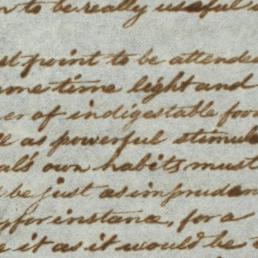 to be really useful
point to be attende
time light and
of indigestable foo
as powerful stimul
own habits must
be just as impruden
for instance, for a
it as it would be